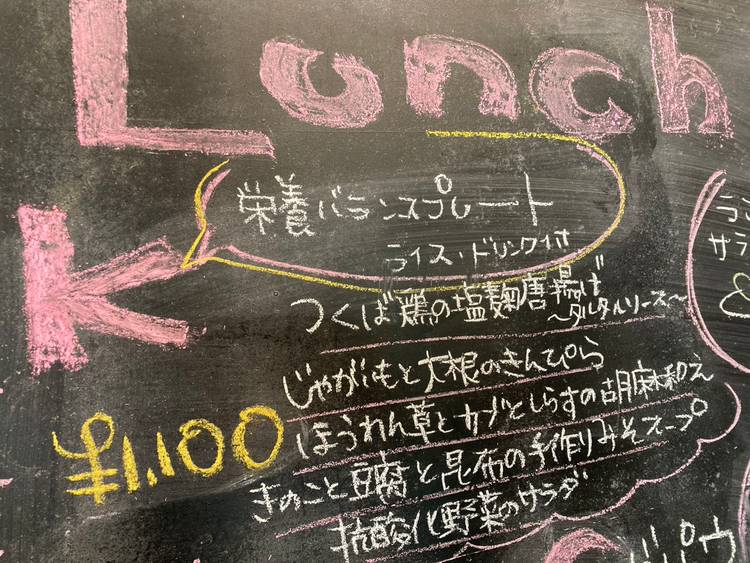 Lunch
栄養バランスプレート
ライス・ドリンク付
K
つくば鶏の塩麹唐揚げ
〜タルタルソース〜
じゃがいもと大根のきんぴら
¥1,100
ほうれん草とカブとしらすの胡麻和え
きのこと豆腐と昆布の手作りみそスープ
抗酸化野菜のサラダ
サラ
&